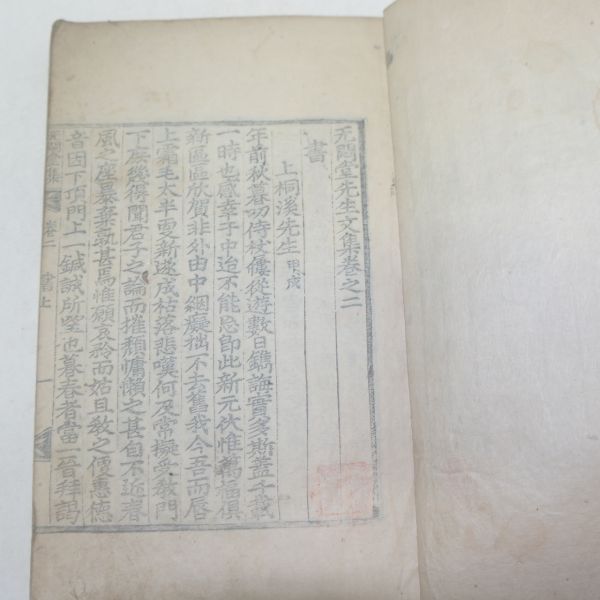 无悶堂先生文集卷之二
書
上桐溪先生 甲戌
年前秋暮叨侍杖屨從遊數日鐫誨實多斯蓋千載
一時也感幸于中迨不能忘卽此新元伏惟萬福俱
新區區欣賀非外由中絪癡拙一不去舊我今吾而唇
上霜毛太半面新遂成枯落悲嘆何及常擬受敎門
下庶幾得聞君子之論而摧頹慵懶之甚自不近春
風之座暴棄孰甚焉惟願哀矜而姑且敎之便惠德
音因下頂門上一鍼誠所望也暮春者當一晉拜謁
卷二 書上 一